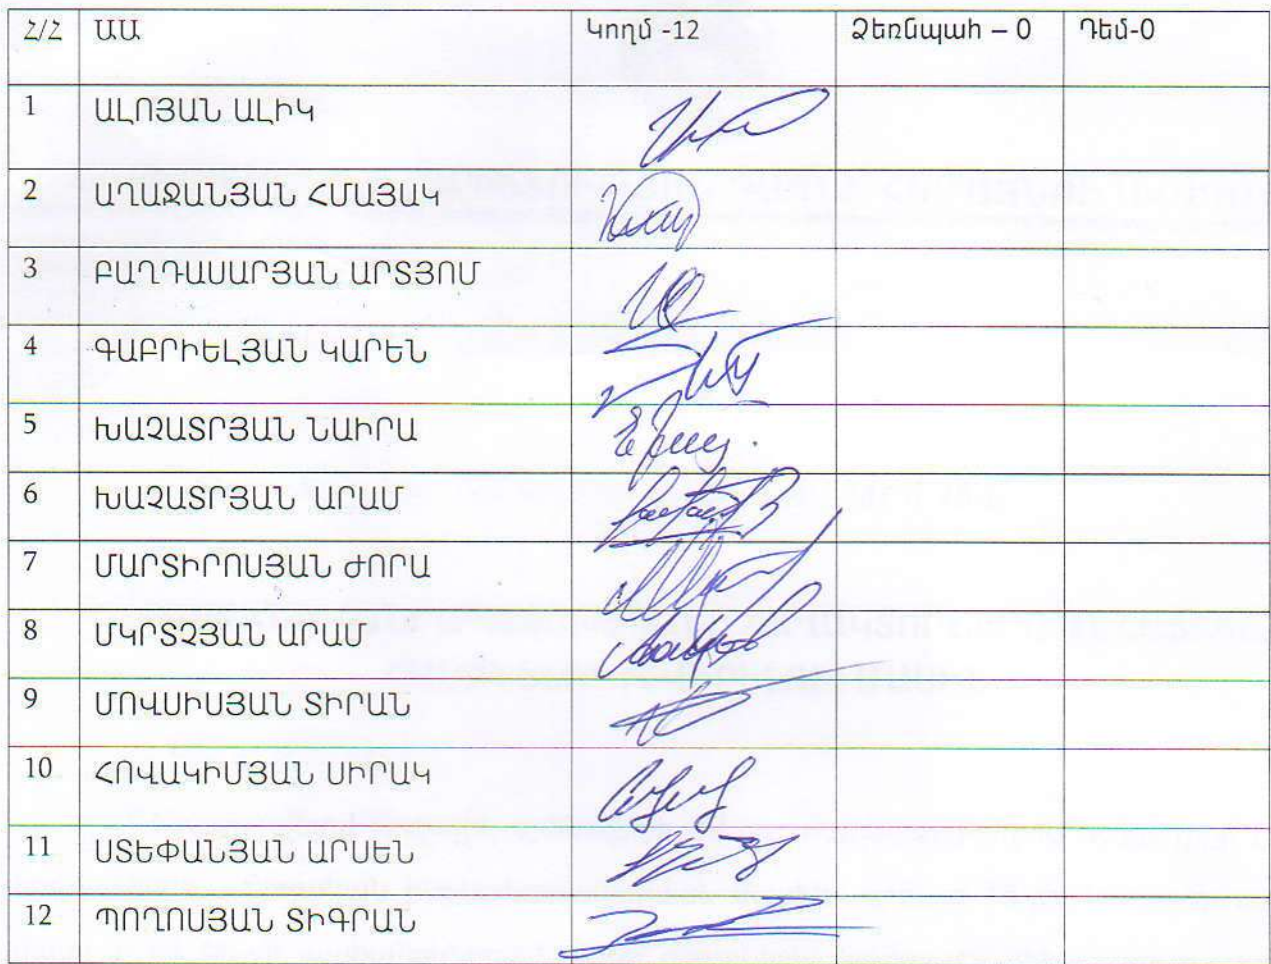 Հ/Հ ԱԱ Կողմ -12 Ձեռնպահ – 0 Դեմ-0
1 ԱԼՈՅԱՆ ԱԼԻԿ
2 ԱՂԱՋԱՆՅԱՆ ՀՄԱՅԱԿ
3 ԲԱՂԴԱՍԱՐՅԱՆ ԱՐՏՅՈՄ
4 ԳԱԲՐԻԵԼՅԱՆ ԿԱՐԵՆ
5 ԽԱՉԱՏՐՅԱՆ ՆԱԻՐԱ
6 ԽԱՉԱՏՐՅԱՆ ԱՐԱՄ
7 ՄԱՐՏԻՐՈՍՅԱՆ ԺՈՐԱ
8 ՄԿՐՏՉՅԱՆ ԱՐԱՄ
9 ՄՈՎՍԻՍՅԱՆ ՏԻՐԱՆ
10 ՀՈՎԱԿԻՄՅԱՆ ՍԻՐԱԿ
11 ՍՏԵՓԱՆՅԱՆ ԱՐՍԵՆ
12 ՊՈՂՈՍՅԱՆ ՏԻԳՐԱՆ